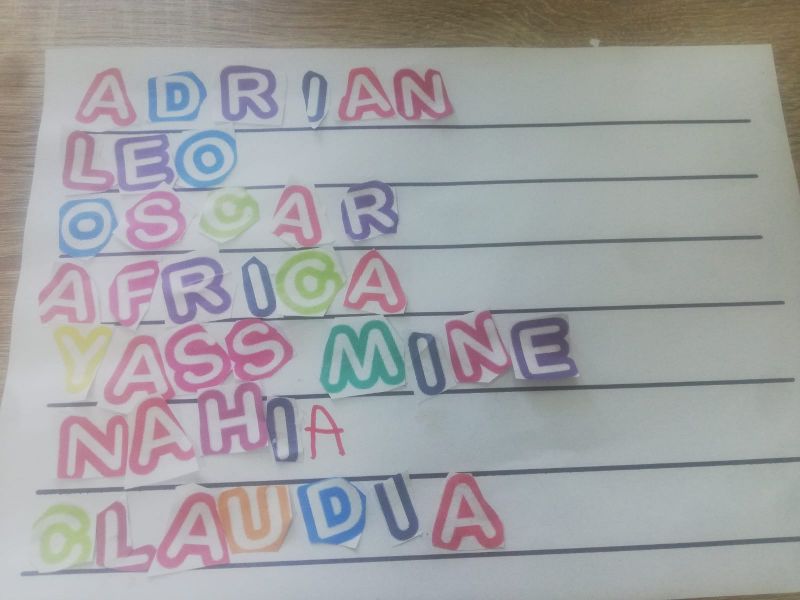 ADRIAN
LEO
OSCAR
AFRICA
YASSMINE
NAHIA
CLAUDIA